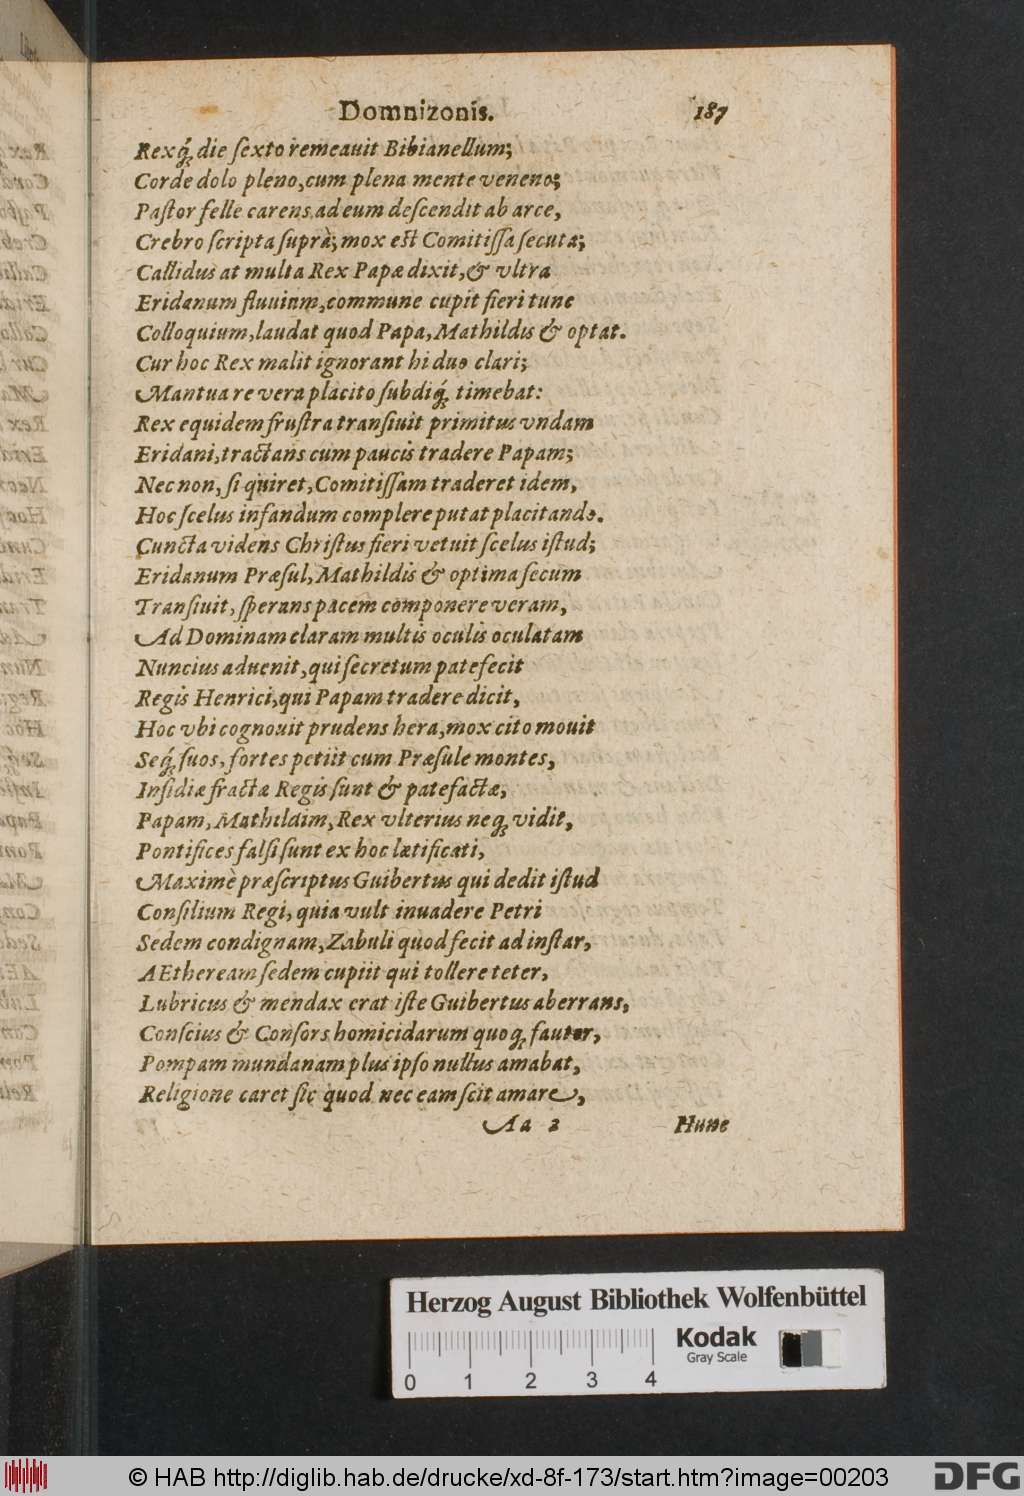 Domnizonis. 187
Rexq́ꝫ die ſexto remeauit Bibianellum;
Corde dolo pleno, cum plena mente veneno;
Paſtor felle carens ad eum deſcendit ab arce,
Crebro ſcripta ſuprà; mox est Comitiſſa ſecuta;
Callidus at multa Rex Papæ dixit, & vltra
Eridanum fluuium, commune cupit fieri tunc
Colloquium, laudat quod Papa, Mathildis & optat.
Cur hoc Rex malit ignorant hi duo clari;
Mantua re vera placito ſubdiq́ꝫ timebat:
Rex equidem fruſtra tranſiuit primitus vndam
Eridani, tractans cum paucis tradere Papam;
Nec non, ſi quiret, Comitiſſam traderet idem,
Hoc ſcelus infandum complere putat placitando.
Cuncta videns Chriſtus fieri vetuit ſcelus iſtud;
Eridanum Præſul, Mathildis & optima ſecum
Tranſiuit, ſperans pacem componere veram,
Ad Dominam claram multis oculis oculatam
Nuncius aduenit, qui ſecretum patefecit
Regis Henrici, qui Papam tradere dicit,
Hoc vbi cognouit prudens hera, mox cito mouit
Seq́ꝫ ſuos, fortes petiit cum Præſule montes,
Inſidiæ fractæ Regis ſunt & patefactæ,
Papam, Mathildim, Rex vlterius neqꝫ vidit,
Pontifices falſi ſunt ex hoc lætificati,
Maximè præſcriptus Guibertus qui dedit iſtud
Conſilium Regi, quia vult inuadere Petri
Sedem condignam, Zabuli quod fecit ad inſtar,
AEtheream ſedem cupiit qui tollere teter,
Lubricus & mendax erat iſte Guibertus aberrans,
Conſcius & Conſors homicidarum quoqꝫ fautor,
Pompam mundanam plus ipſo nullus amabat,
Religione caret ſic quod nec eam ſcit amare,
Aa 2 Hunc
Herzog August Bibliothek Wolfenbüttel
Kodak
Gray Scale
0 1 2 3 4
© HAB http://diglib.hab.de/drucke/xd-8f-173/start.htm?image=00203
DFG